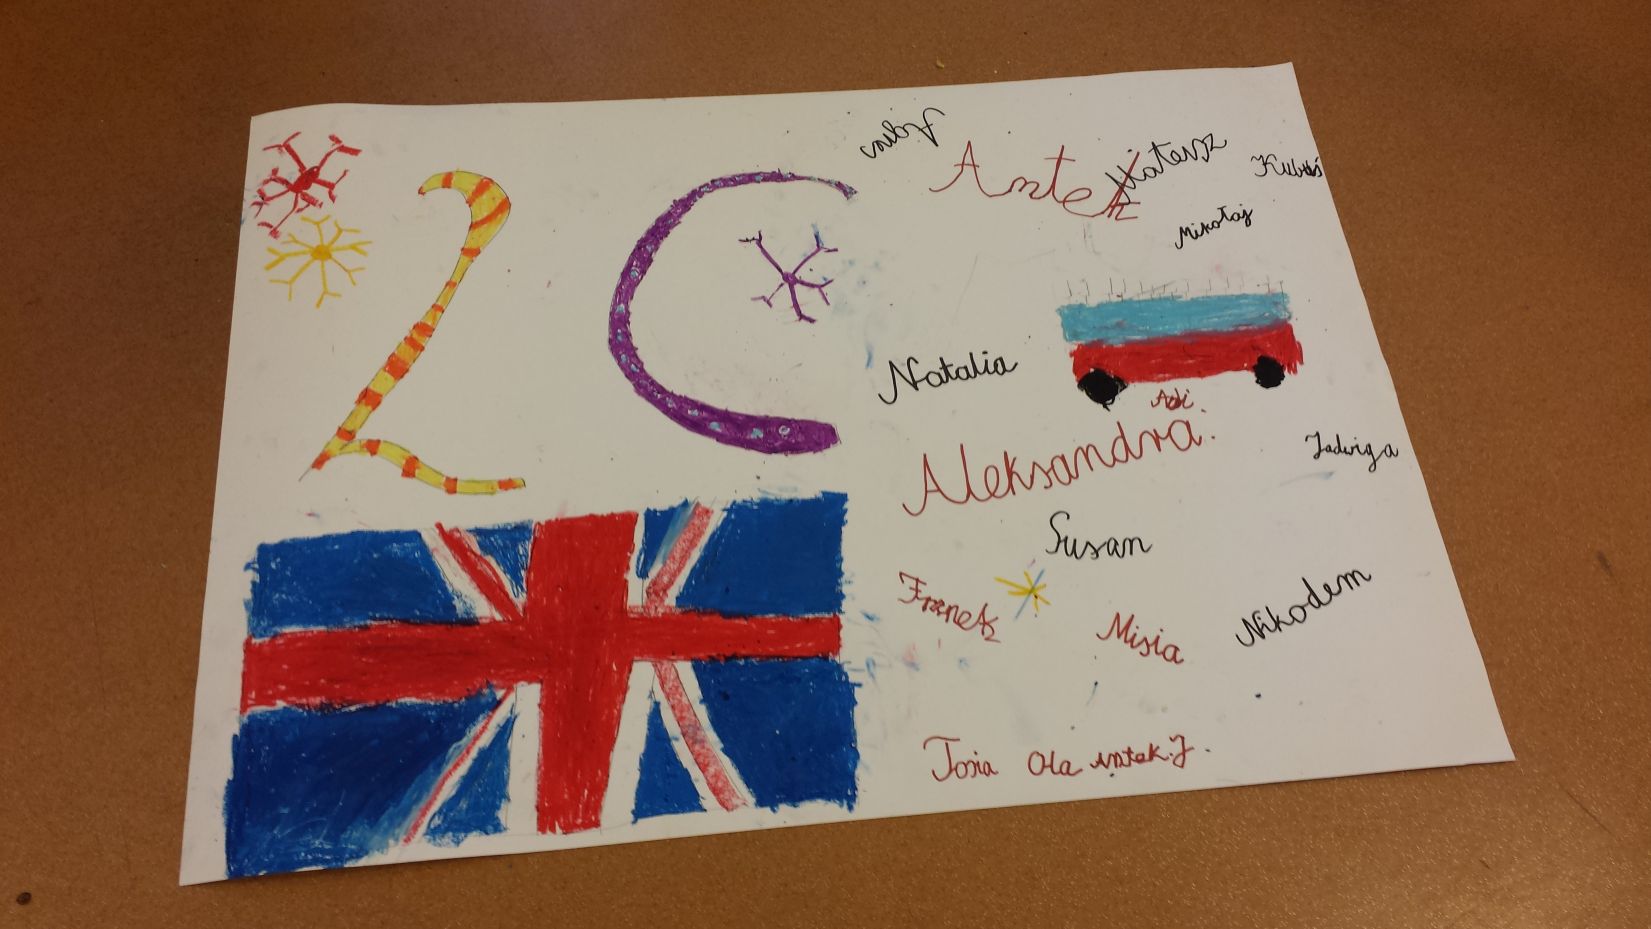 2C
Antek
Mateusz
Kubuś
Mikołaj
Natalia
Adi.
Aleksandra.
Jadwiga
Susan
Franek
Misia
Nikodem
Tosia Ola Antek.J.